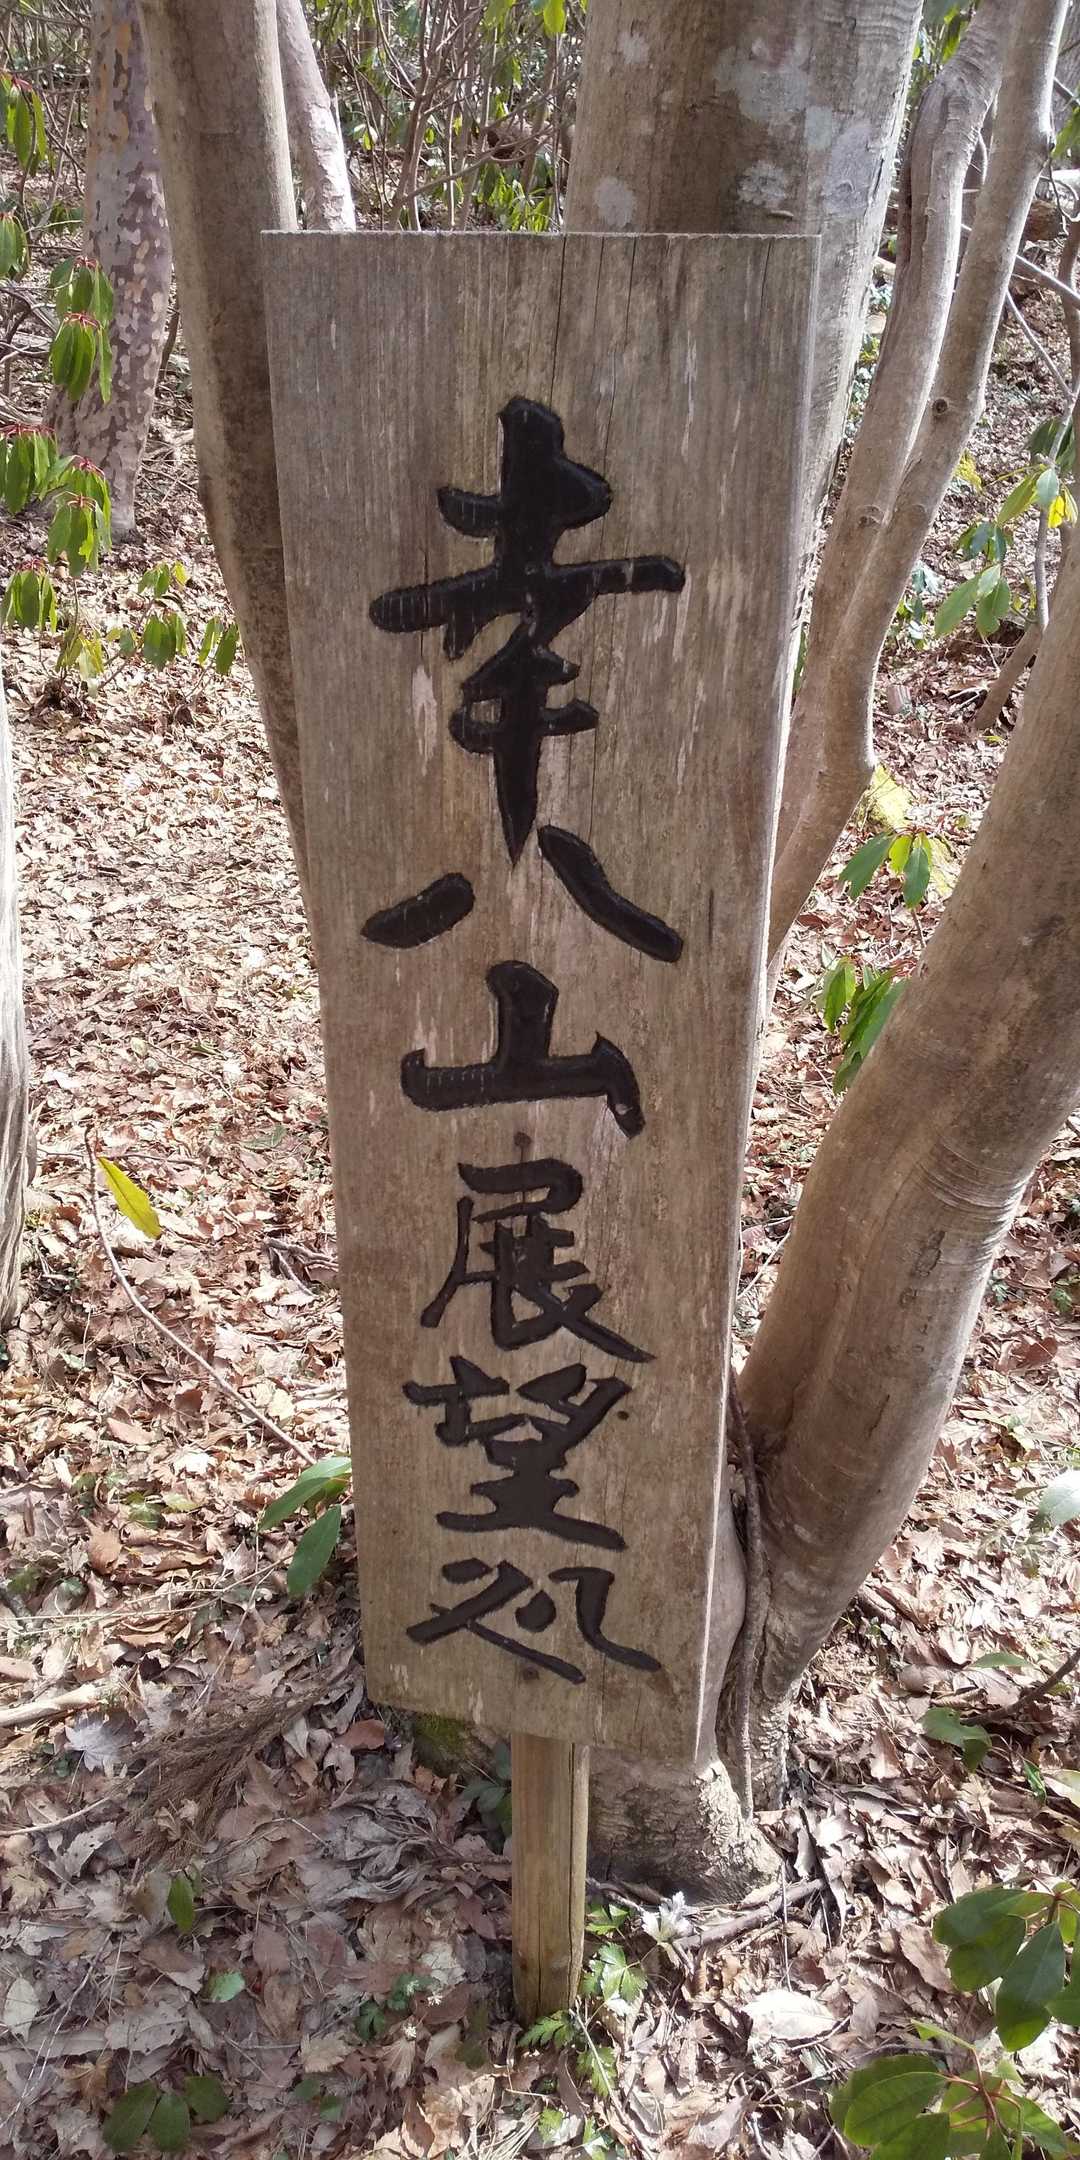 幸八山展望処